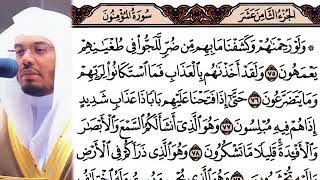 الجزء الثامن عشر سورة المؤمنون
۞ وَلَوْ رَحِمْنَٰهُمْ وَكَشَفْنَا مَا بِهِم مِّن ضُرٍّ لَّلَجُّوا۟ فِى طُغْيَٰنِهِمْ
يَعْمَهُونَ ٧٥ وَلَقَدْ أَخَذْنَٰهُم بِٱلْعَذَابِ فَمَا ٱسْتَكَانُوا۟ لِرَبِّهِمْ
وَمَا يَتَضَرَّعُونَ ٧٦ حَتَّىٰٓ إِذَا فَتَحْنَا عَلَيْهِم بَابًا ذَا عَذَابٍ شَدِيدٍ
إِذَا هُمْ فِيهِ مُبْلِسُونَ ٧٧ وَهُوَ ٱلَّذِىٓ أَنشَأَ لَكُمُ ٱلسَّمْعَ وَٱلْأَبْصَٰرَ
وَٱلْأَفْـِٔدَةَ قَلِيلًا مَّا تَشْكُرُونَ ٧٨ وَهُوَ ٱلَّذِى ذَرَأَكُمْ فِى ٱلْأَرْضِ
وَإِلَيْهِ تُحْشَرُونَ